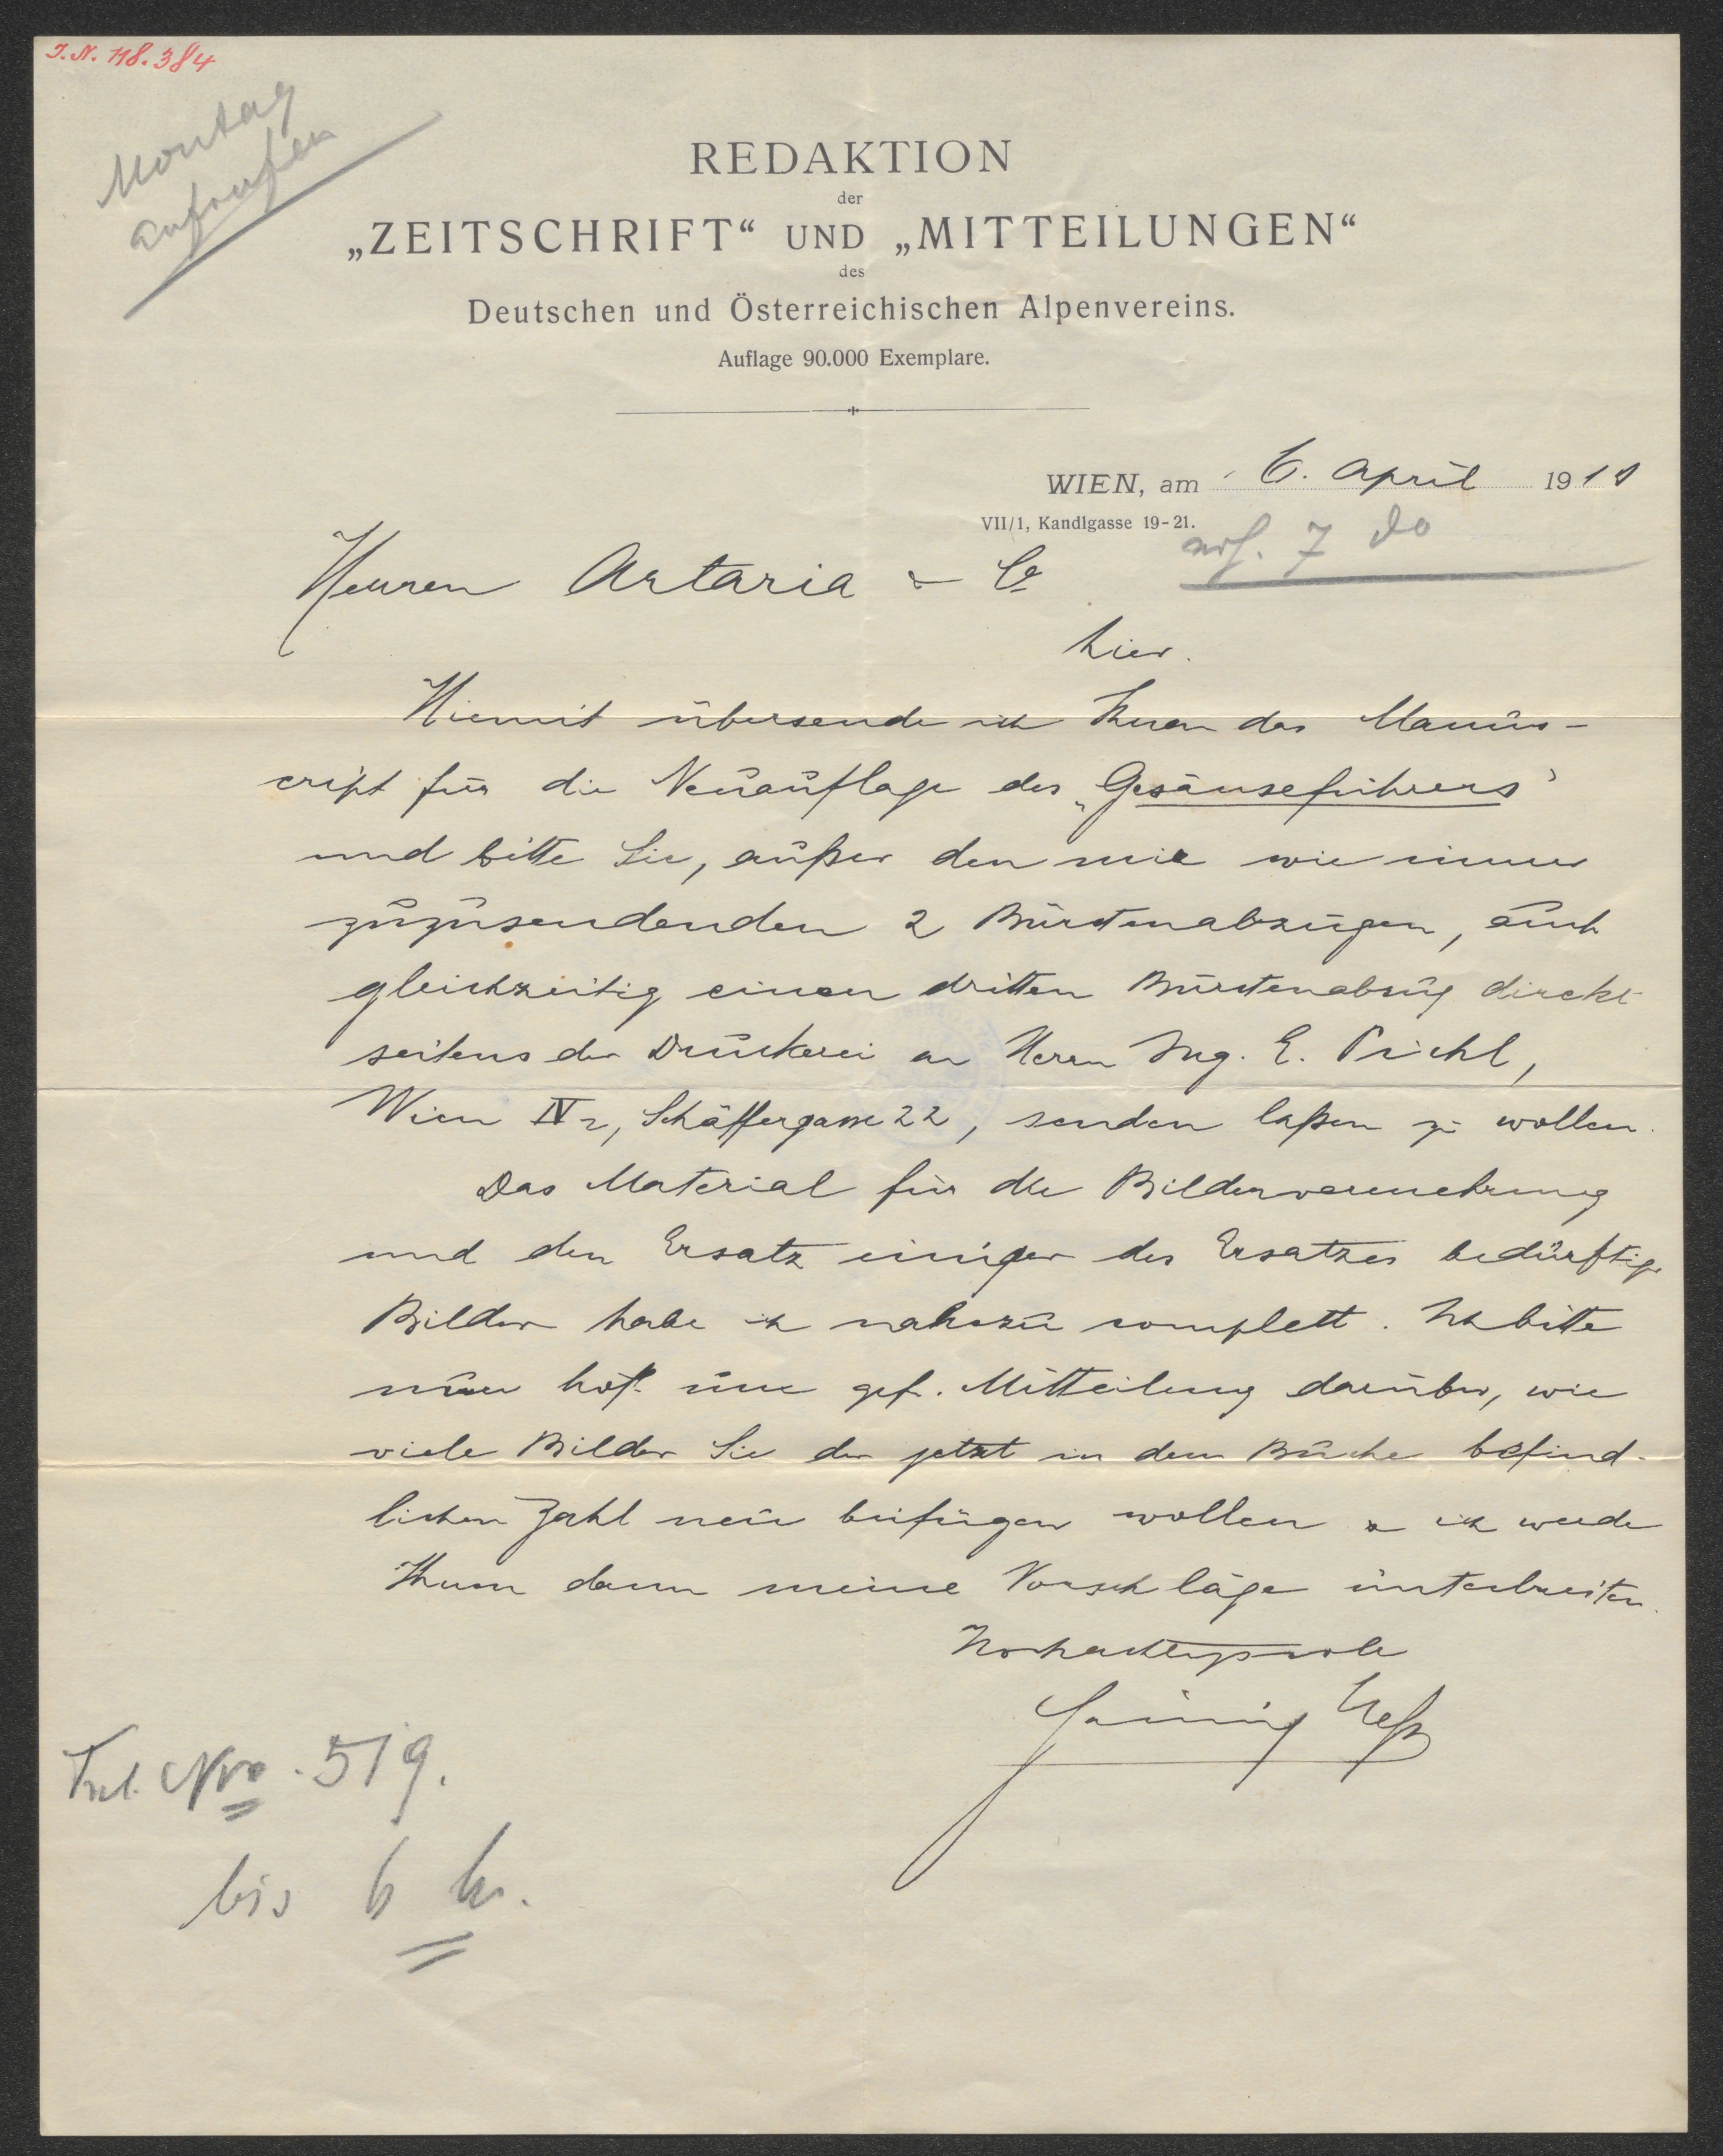 J.N. 118.384
Montag
anfrufen
REDAKTION
der
„ZEITSCHRIFT“ UND „MITTEILUNGEN“
des
Deutschen und Österreichischen Alpenvereins.
Auflage 90.000 Exemplare.
WIEN, am 6. April 1910
VII/1, Kandlgasse 19-21.
7 do
Herren Artaria & Co
hier.
Hiemit übersende ich Ihnen das Manus-
cript für die Neuauflage des „Gesäuseführers“
und bitte Sie, außer den mir wie immer
zuzusendenden 2 Bürstenabzügen, auch
gleichzeitig einen dritten Bürstenabzug direkt
seitens der Druckerei an Herrn Ing. E. Pichl,
Wien IV 2, Schäffergasse 22, senden laßen zu wollen.
Das Material für die Bildervermehrung
und den Ersatz einiger des Ersatzes bedürftige
Bilder habe ich nahezu complett. Ich bitte
nun höfl. um gef. Mitteilung darüber, wie
viele Bilder Sie der jetzt in dem Buche befind-
lichen Zahl neu beifügen wollen & ich werde
Ihnen dann meine Vorschläge unterbreiten.
Hochachtungsvoll
Heß
Tel. Nro. 519.
bis 6 Uhr.